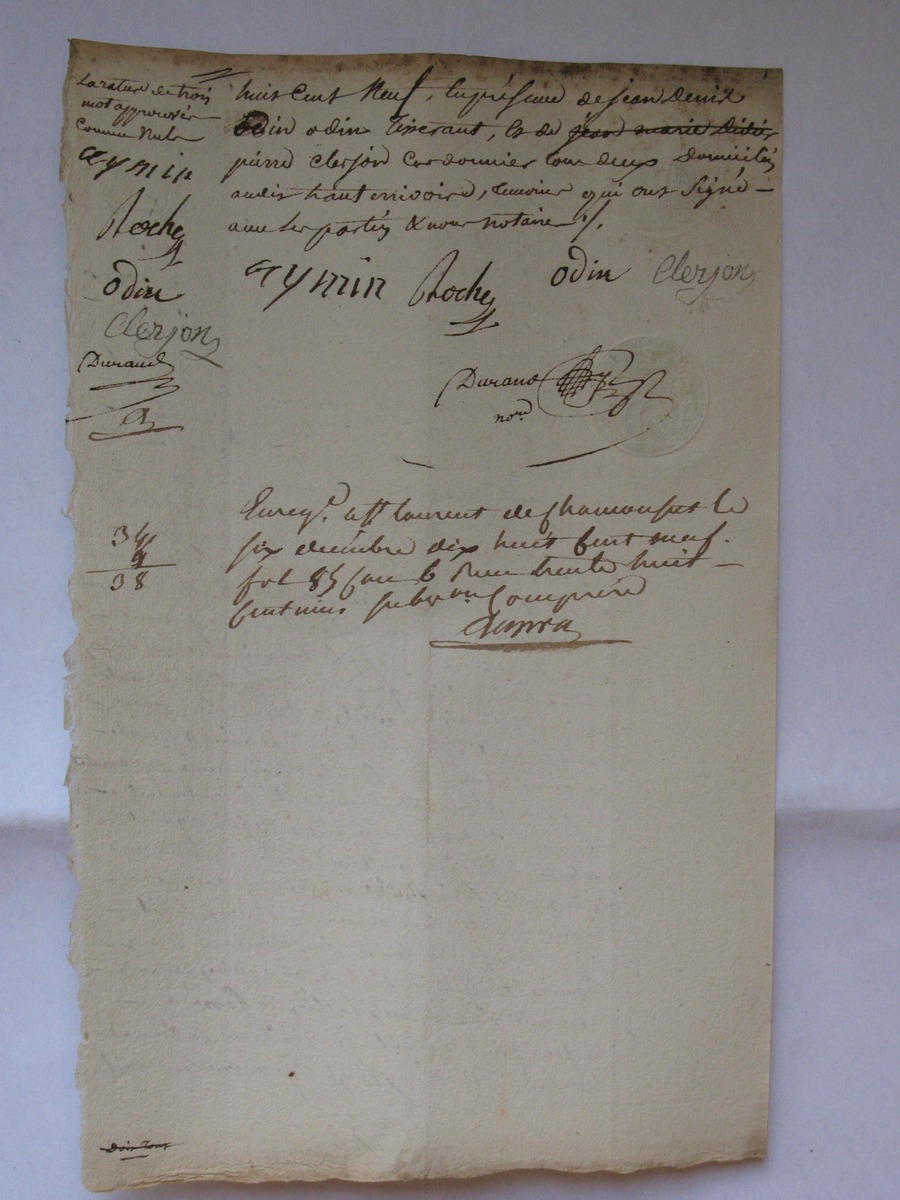 La rature de trois
mot approuvée
Comme Nulle
aymin
Roche
odin
Clerjon
Durand
huit Cent Neuf, En présence de jean denis
odin tisserant, & de jean marie
pierre Clerjon Cordonnier tous deux Domiciliés
audit hauterivoire, temoins qui ont Signé
avec les parties & nous notaire ./.
aymin Roche odin Clerjon
Durand
nore
Enregé. à St laurent de Chamousset le
six decembre dix huit Cent neuf.
fol 85 Case 6 Reçu trente huit
Centimes subvon Comprise
34
4
38
Doit Tout